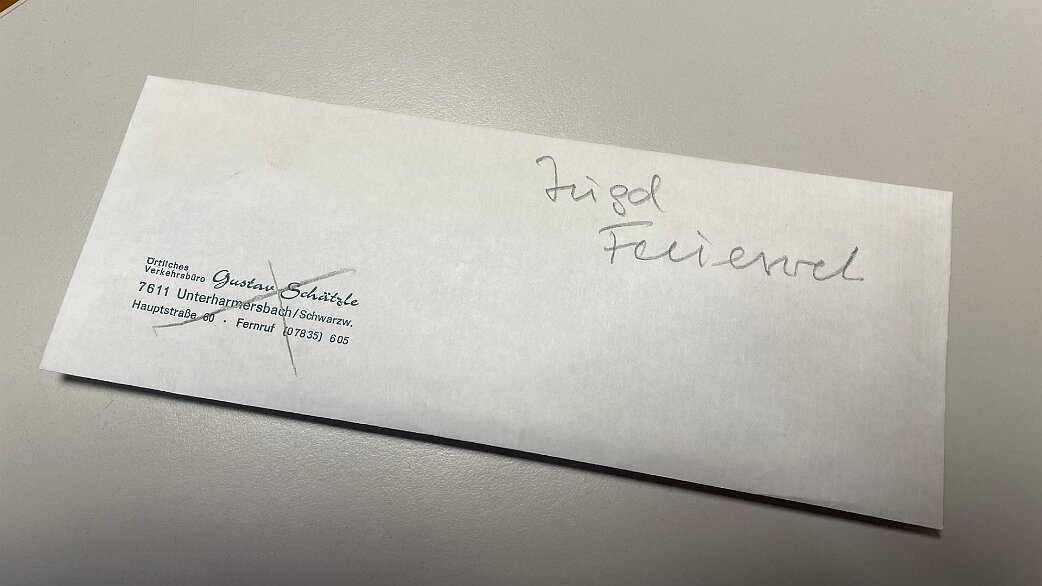 Jugd
Feuerwel
Örtliches
Verkehrsbüro Gustav Schätzle
7611 Unterharmersbach/Schwarzw.
Hauptstraße 60 · Fernruf (07835) 605